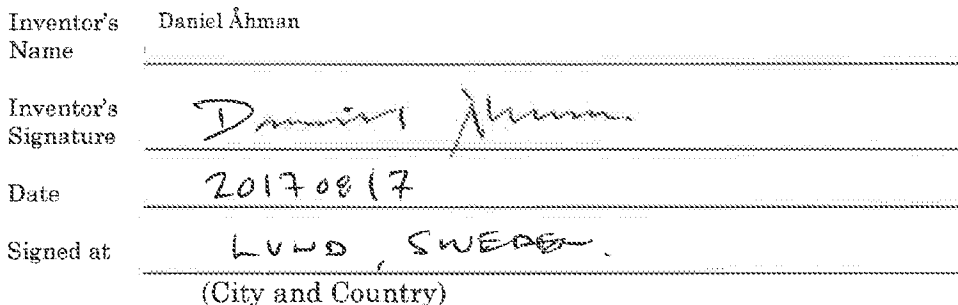 Inventor's Name Daniel Åhman
Inventor's Signature Daniel Åhman
Date 20170817
Signed at LUND, SWEDEN.
(City and Country)